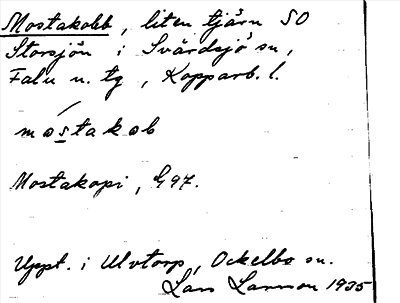 Mostakobb, liten tjärn SO
Storsjön i Svärdsjö sn,
Falu n. tg, Kopparb. l.
móstakob
Mostakopi, G 97.
Uppt. i Ulvtorp, Ockelbo sn.
Lars Larsson 1935